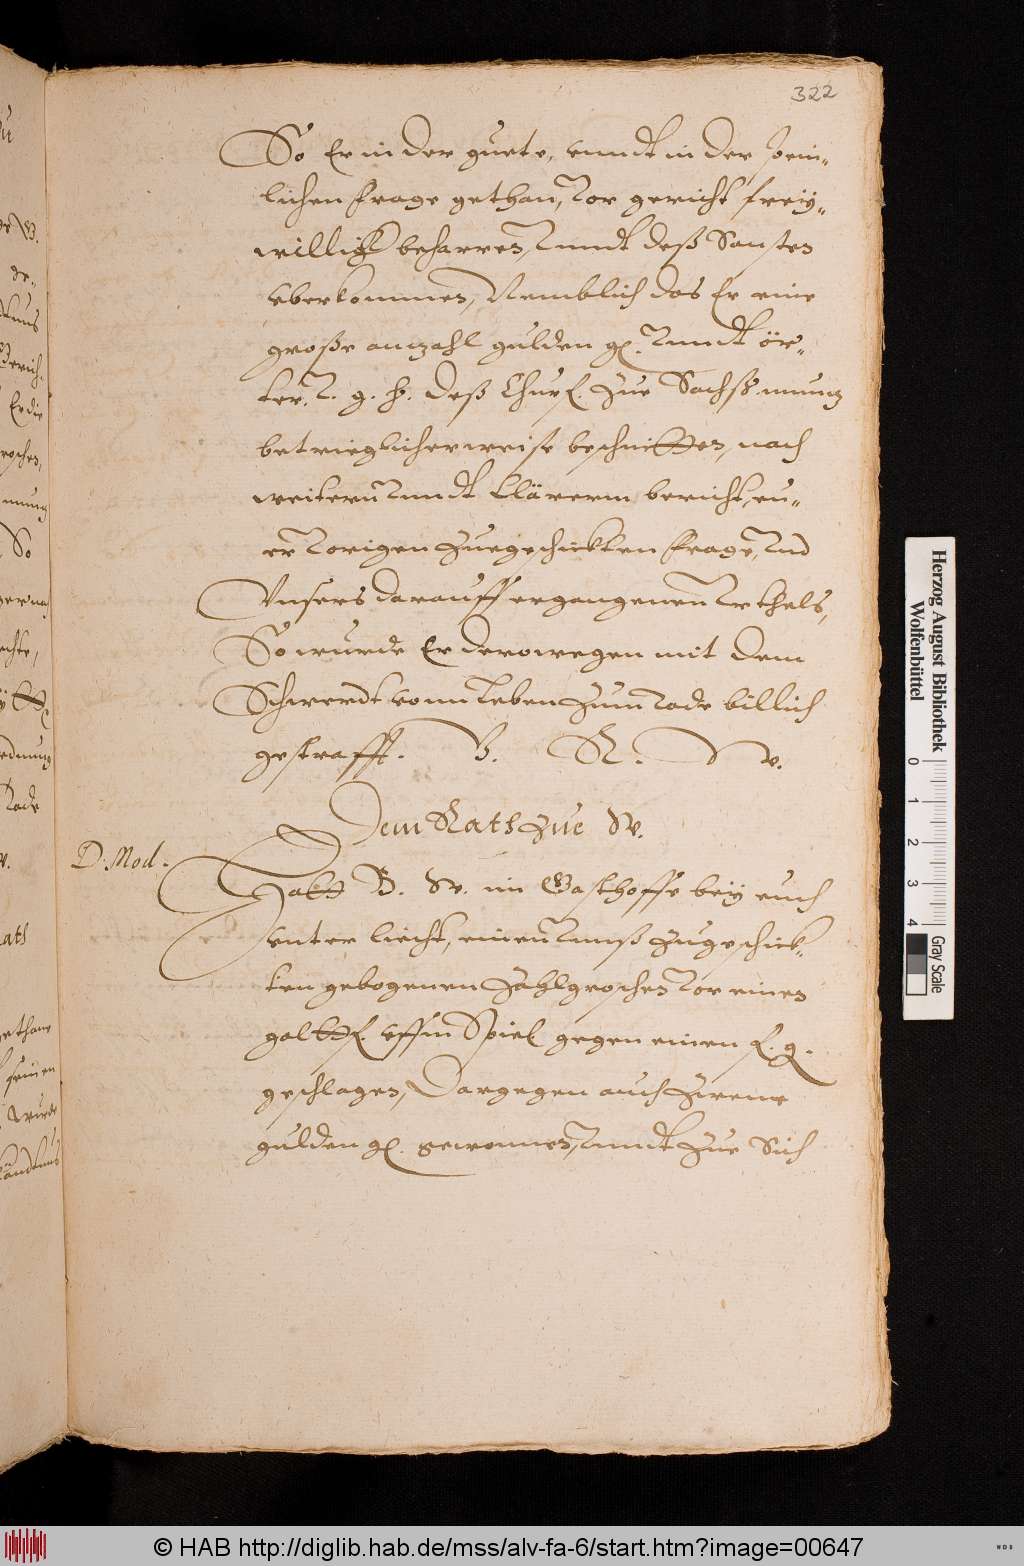 322
So Er in der guete, vnndt in der pein-
lichen frage gethan, vor gericht freÿ-
willig beharren, vnndt deß Sonsten
vberkommen, Nemblich das Er eine
große anzahl gulden gl. vnndt ör-
ter, v. g. h. deß Churf. Zue Sachß. muntz
betrieglicherweise beschnitten, nach
weiterm vnndt Clärerm bericht, eu-
er vorigen zuegeschickten frage, vnd
Vnsers darauff ergangenen vrthels,
So wurde Er derowegen mit dem
Schwerdt vom leben Zum tode billich
gestrafft. V. R. W.
Dem Rath Zue W.
D. Mod.
Hatt B. W. im Gasthoffe beÿ euch
vnter liecht, einen vnnß zugeschick-
ten gebogenen Zahlgroschen vor einen
goltfl. vffm Spiel gegen einen f. g.
geschlagen, Dargegen auch Zweene
gulden gl. gewonnen, vnndt Zue Sich
Herzog August Bibliothek
Wolfenbüttel
0 1 2 3 4
Gray Scale
© HAB http://diglib.hab.de/mss/alv-fa-6/start.htm?image=00647